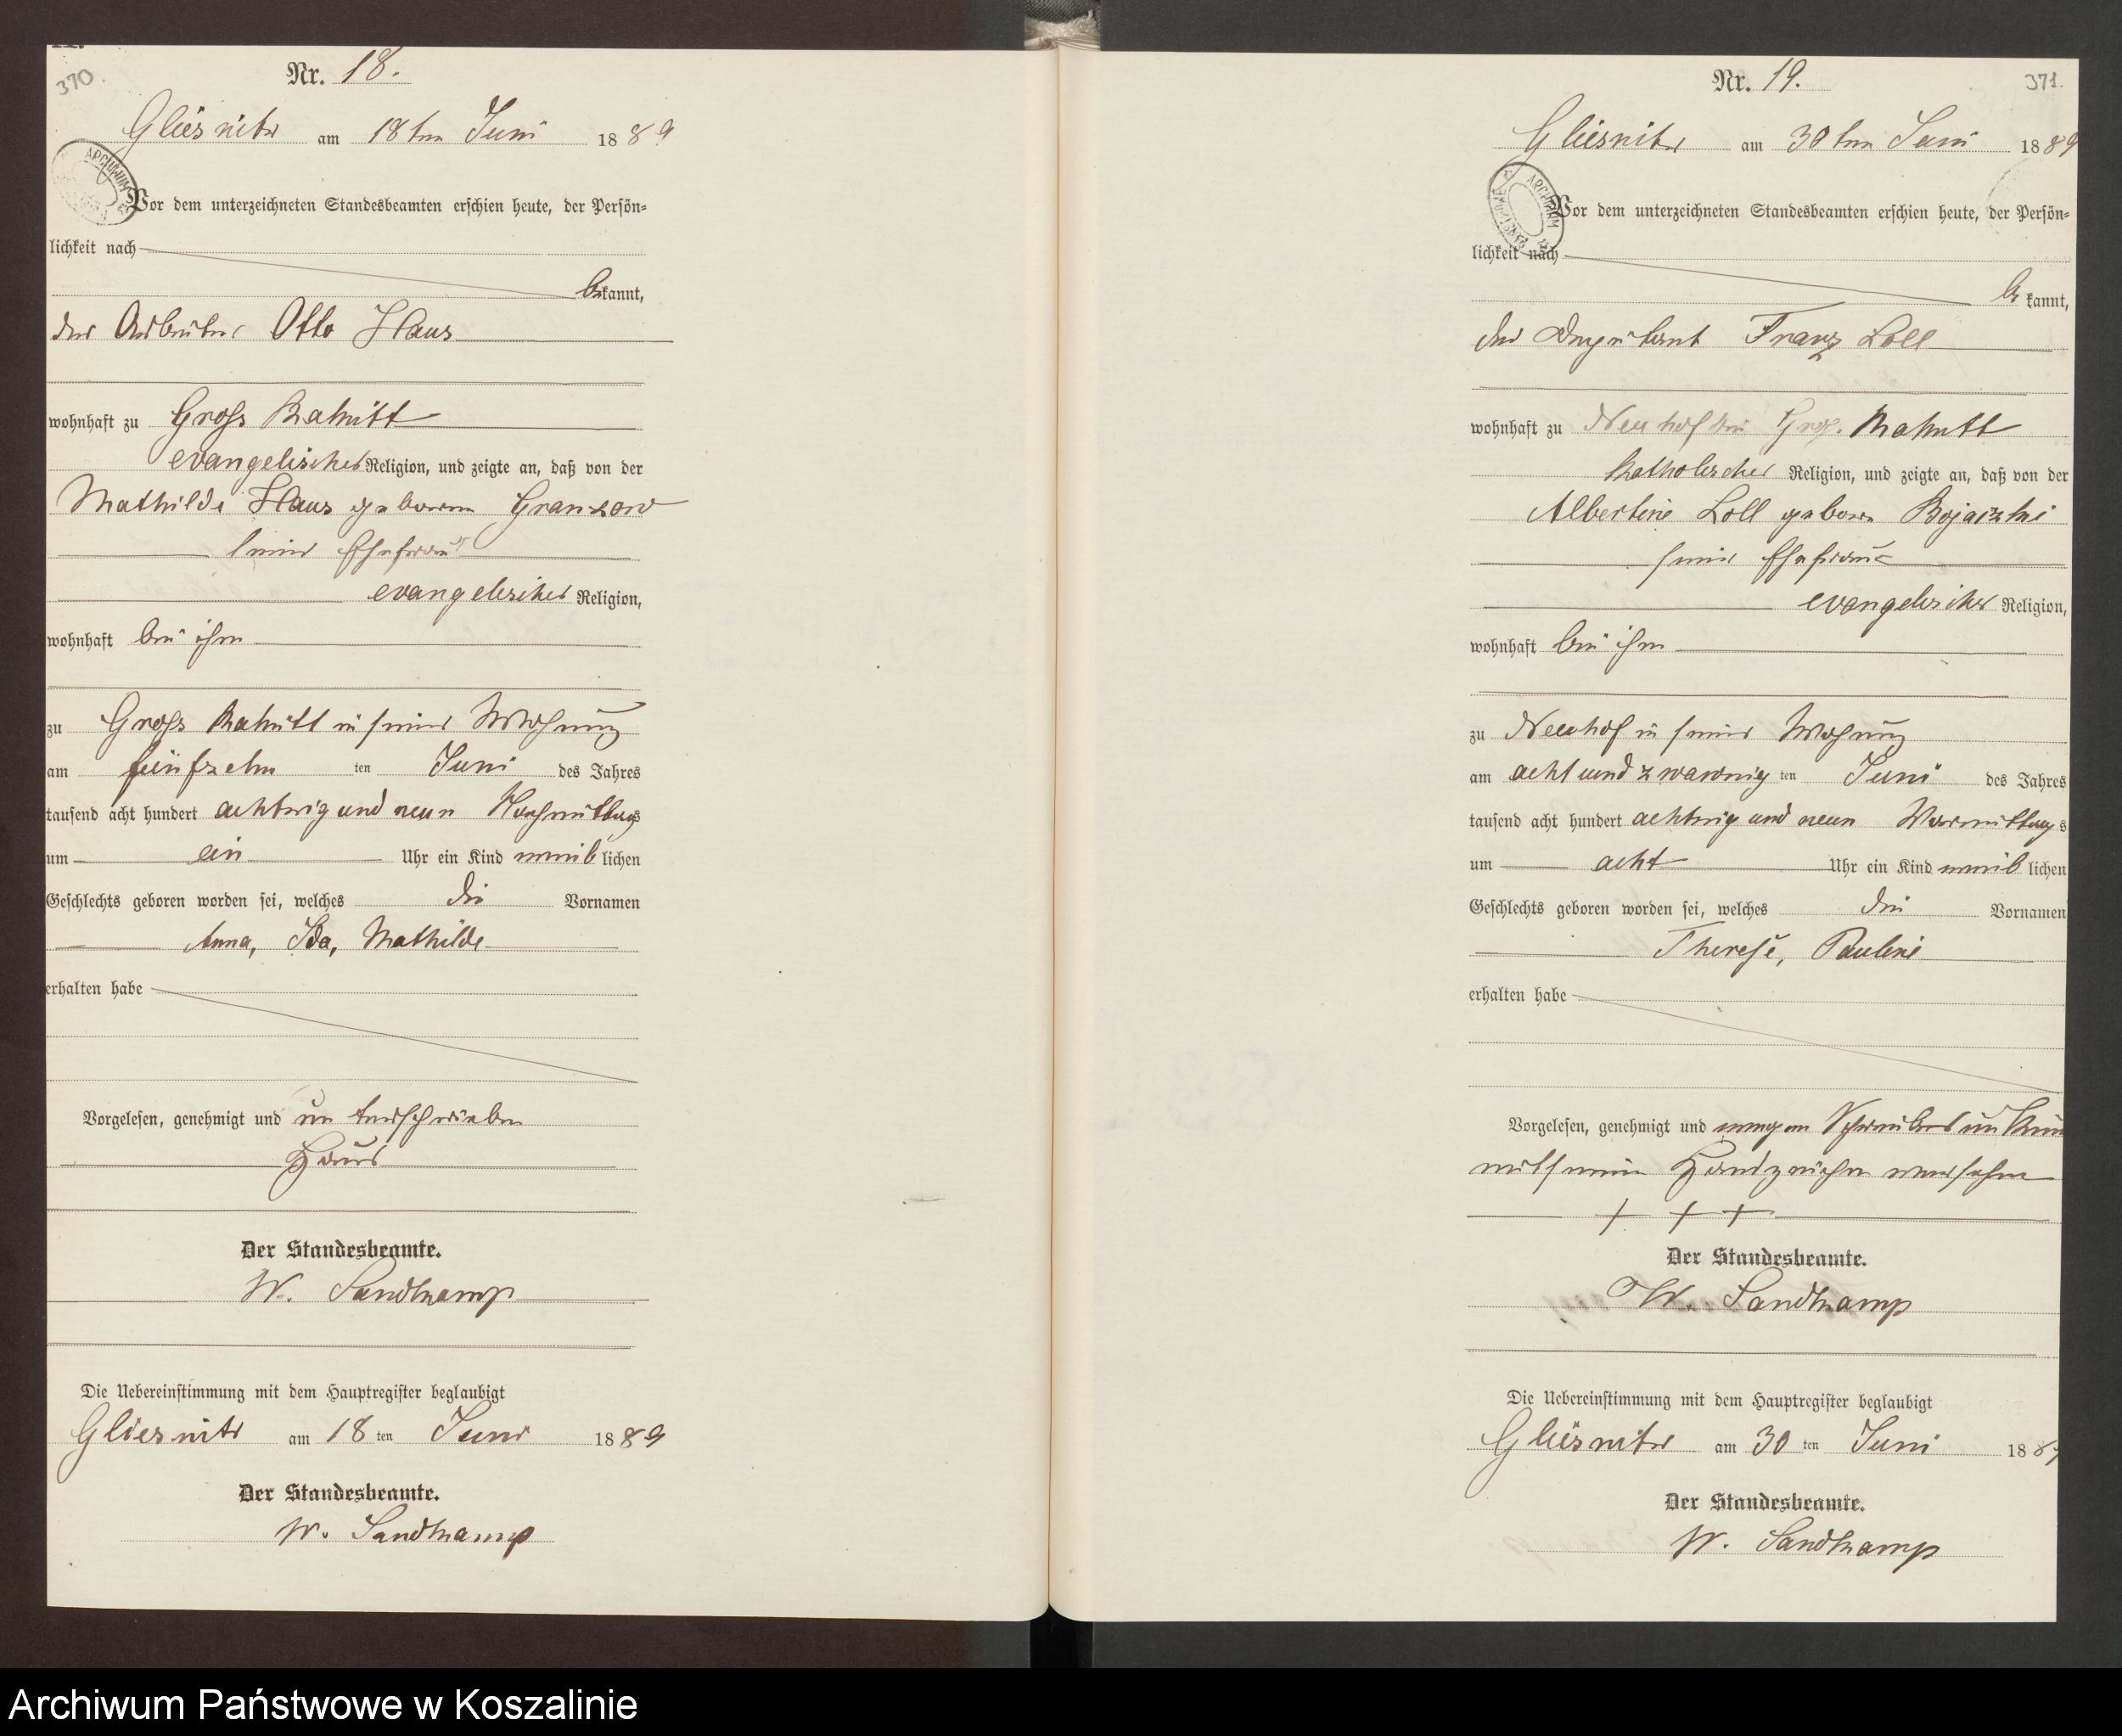 370.
Nr. 18.
Gliesnitz am 18ten Juni 1889
Vor dem unterzeichneten Standesbeamten erschien heute, der Persön=
lichkeit nach
bekannt,
der Arbeiter Otto Haus
wohnhaft zu Gross Rakitt
evangelischer Religion, und zeigte an, daß von der
Mathilde Haus geborene Granzow
seiner Ehefrau
evangelischer Religion,
wohnhaft bei ihm
zu Gross Rakitt in seiner Wohnung
am fünfzehn ten Juni des Jahres
tausend acht hundert achtzig und neun Nachmittags
um ein Uhr ein Kind weiblichen
Geschlechts geboren worden sei, welches die Vornamen
Anna, Ida, Mathilde
erhalten habe
Vorgelesen, genehmigt und unterschrieben
Haus
Der Standesbeamte.
W. Sandkamp
Die Uebereinstimmung mit dem Hauptregister beglaubigt
Gliesnitz am 18ten Juni 1889
Der Standesbeamte.
W. Sandkamp
371.
Nr. 19.
Gliesnitz am 30ten Juni 1889
Vor dem unterzeichneten Standesbeamten erschien heute, der Persön=
lichkeit nach
bekannt,
der Franz Loll
wohnhaft zu Neuhof bei Gross. Rakitt
katholischer Religion, und zeigte an, daß von der
Albertine Loll geborene
seiner Ehefrau
evangelischer Religion,
wohnhaft bei ihm
zu Neuhof in seiner Wohnung
am acht und zwanzig ten Juni des Jahres
tausend acht hundert achtzig und neun Vormittags
um acht Uhr ein Kind weiblichen
Geschlechts geboren worden sei, welches die Vornamen
Therese, Pauline
erhalten habe
Vorgelesen, genehmigt und wegen Schreibensunkunde
mit seinem Handzeichen versehen
+ + +
Der Standesbeamte.
W. Sandkamp
Die Uebereinstimmung mit dem Hauptregister beglaubigt
Gliesnitz am 30ten Juni 1889
Der Standesbeamte.
W. Sandkamp
Archiwum Państwowe w Koszalinie